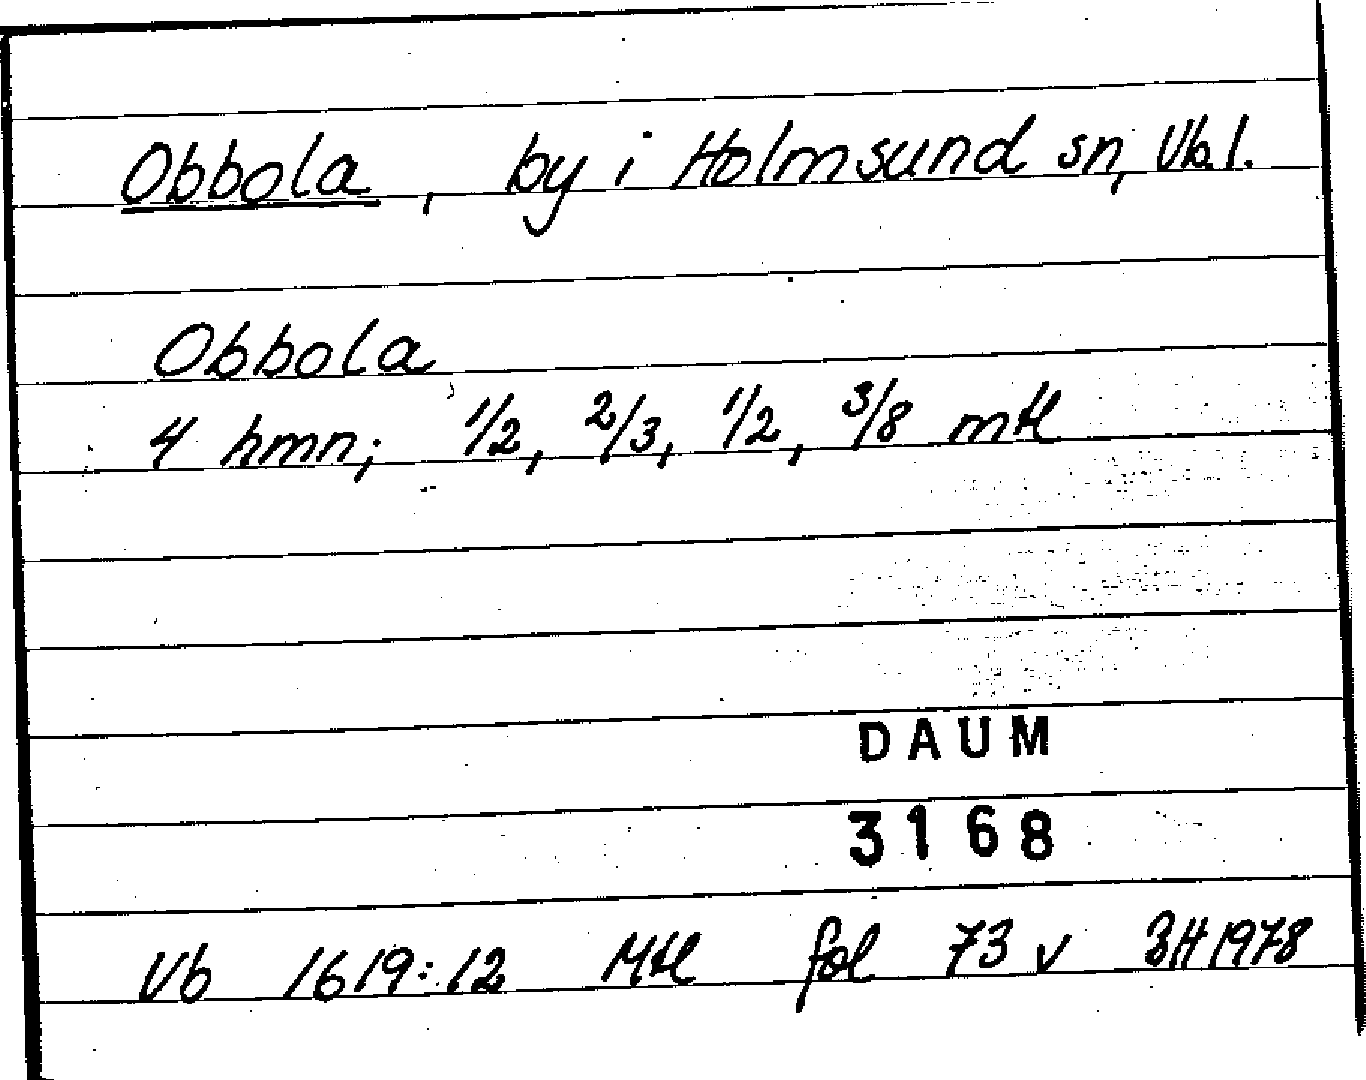 Obbola, by i Holmsund sn, Vb.l.
Obbola
4 hmn; 1/2, 2/3, 1/2, 3/8 mtl
DAUM
3168
Vb 1619:12 Mtl fol 73 v BH 1978